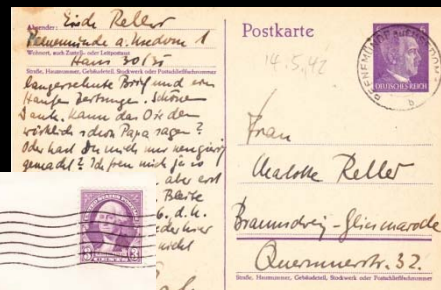 Absender:
Peenemünde a. Usedom 1
Wohnort, auch Zustell- oder Leitpostamt
Haus 30/35
Straße, Hausnummer, Gebäudeteil, Stockwerk oder Postschließfachnummer
langersehnte Brief und ein
Haufen Zeitungen. Schönen
Dank. Kann das Ding denn
wirklich schon Papa sagen?
Oder hast Du mich nur neugierig
gemacht? Ich freu mich ja so
aber erst
Bleibe
6. d. h.
hier
nicht
Postkarte
14.5.42
DEUTSCHES REICH
PEENEMÜNDE auf USEDOM
b
Frau
Reller
Braunschweig-Gliesmarode
Querumerstr. 32.
Straße, Hausnummer, Gebäudeteil, Stockwerk oder Postschließfachnummer
3 3